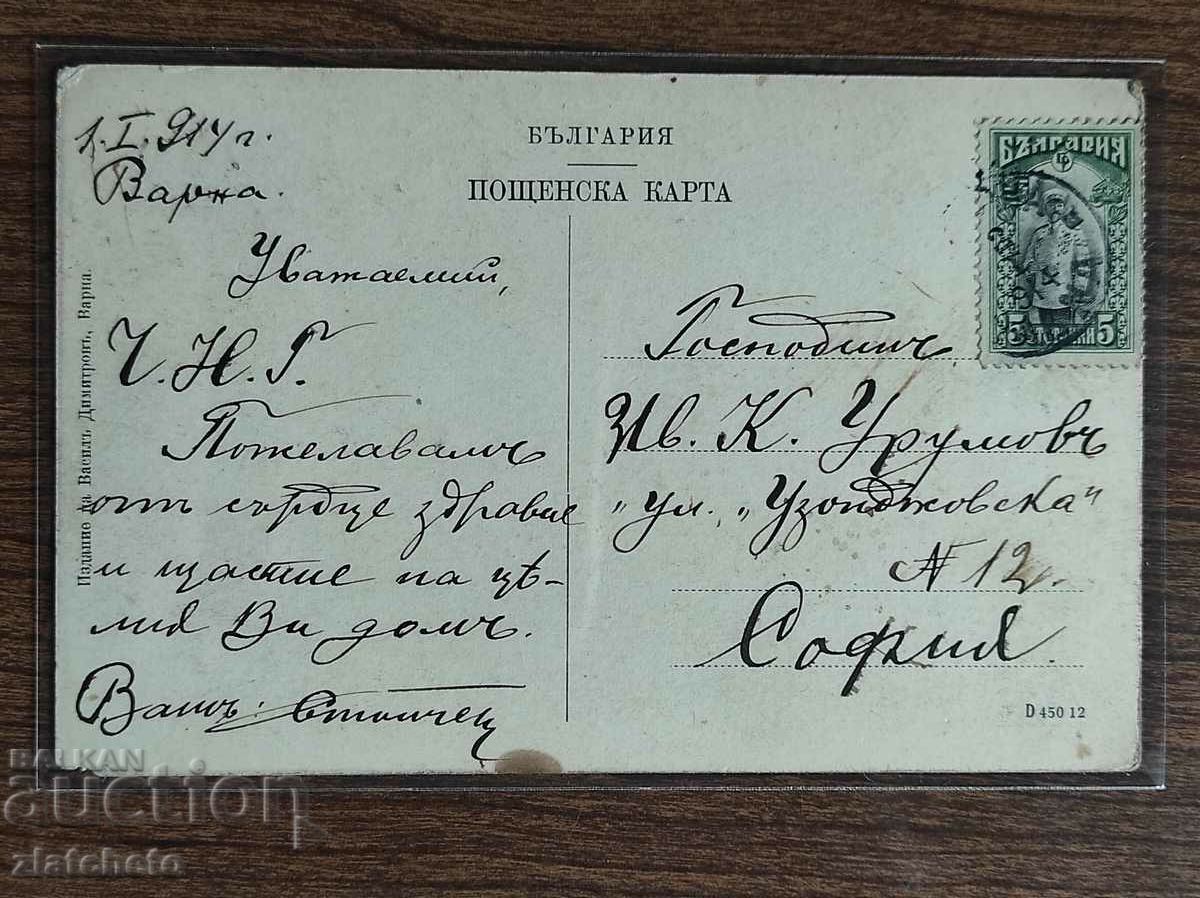 1.I.914 г.
Варна.
БЪЛГАРИЯ
ПОЩЕНСКА КАРТА
Уважаемий,
Ч. Н. Г.
Пожелавамъ
отъ сърдце здравие
и щастие на цѣ-
лия Ви домъ.
Вашъ:
Издание на Василъ Димитровъ, Варна.
БЪЛГАРИЯ
5 СТОТИНКИ 5
Господинъ
Ив. К. Урумовъ
"ул. "Узонджовска"
N 12.
София
D 450 12
BALKAN
auction
zlatcheto